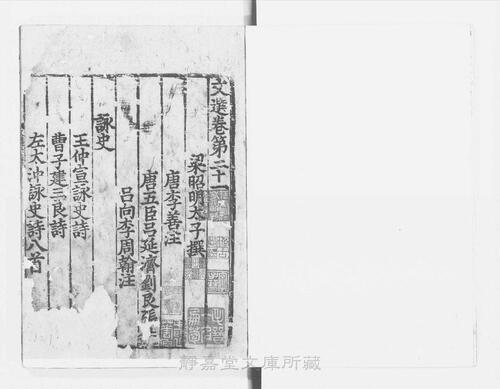 文選卷第二十一
梁昭明太子撰
唐李善注
唐五臣呂延濟劉良張
呂向李周翰注
詠史
王仲宣詠史詩
曹子建三良詩
左太沖詠史詩八首
靜嘉堂文庫所藏